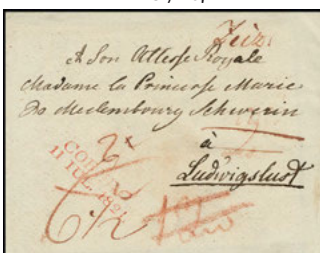 Zeiz
A Son Altesse Royale
Madame la Princesse Marie
De Meclembourg Schwerin
à
Ludwigslust
11 JUL. 1821
6/2